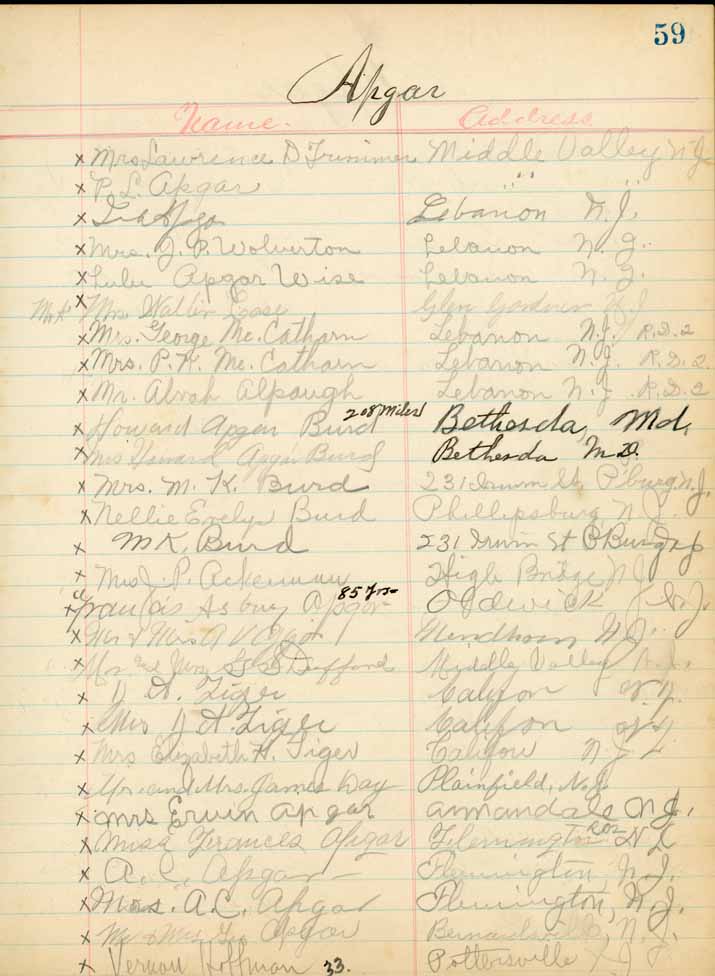 59
Apgar
Name. Address
x Mrs Lawrence D Trimmer Middle Valley N J
x P. L. Apgar " " " "
x Ira Apgar Lebanon N. J.
x Mrs. J. P. Wolverton Lebanon N. J.
x Lulu Apgar Wise Lebanon N. J.
x Mrs. Walter Glen Gardner N J
x Mrs. George Mc. Catharn Lebanon N.J. R.D. 2
x Mrs. P. K. Mc. Catharn Lebanon N. J. R. D. 2
x Mr. Alvah Alpaugh Lebanon N. J. R. D. 2
x Howard Apgar Burd 208 Miles Bethesda, Md.
x Mrs Howard Apgar Burd Bethesda M D.
x Mrs. M. K. Burd 231 Irwin St. P'burg N.J.
x Nellie Evelyn Burd Phillipsburg N. J.
x M K, Burd 231 Irwin St P'Burg N J
x Mrs J. P. Ackerman High Bridge N J
x Francis Asbury Apgar 85 Yrs Oldwick N. J.
x Mr & Mrs A V Apgar Mendham N. J.
x Mr and Mrs Dufford Middle Valley N. J.
x A. Tiger Califon N. J.
x Mrs A. Tiger Califon N J
x Mrs Elizabeth H. Tiger Califon N. J.
x Mr. and Mrs. James Day Plainfield, N.J.
x Mrs Ervin Apgar Annandale N J.
x Miss Frances Apgar Flemington RD2 N J
x A. C. Apgar Flemington N. J.
x Mrs. A.C. Apgar Flemington, N. J.
x Mr & Mrs Geo Apgar Bernardsville, N. J.
x Vernon Hoffman 33. Pottersville N J